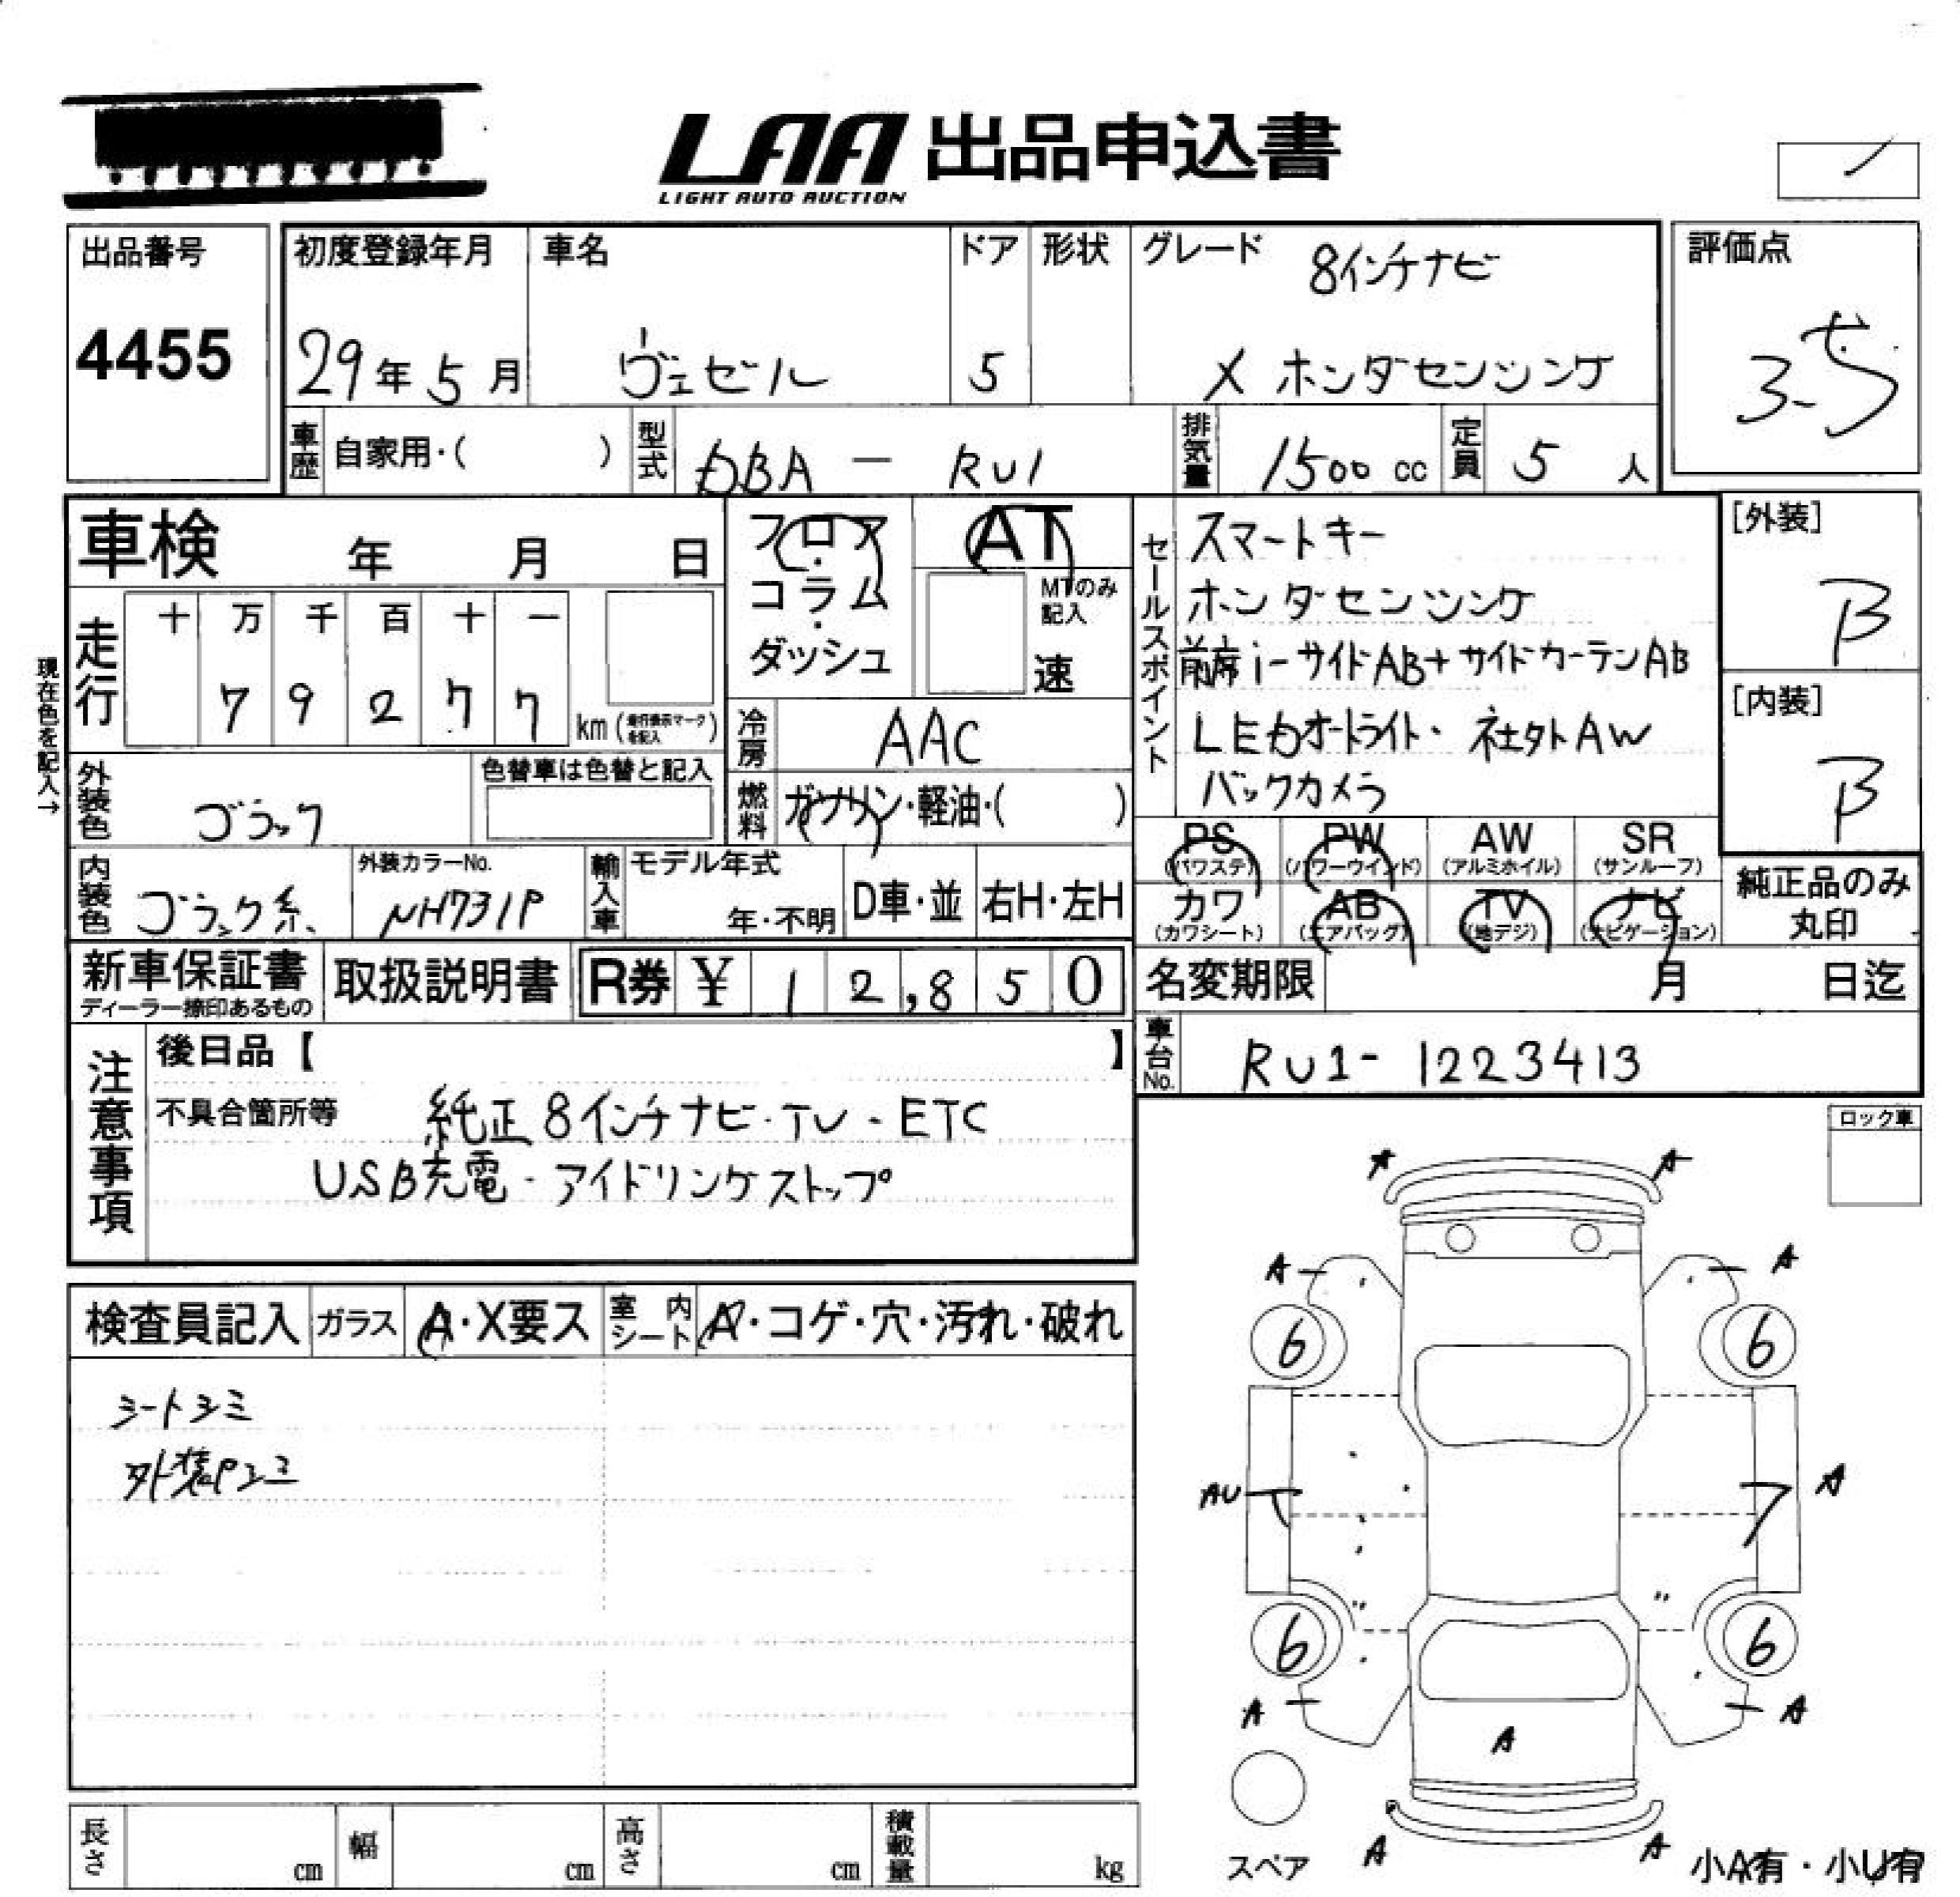 LAA 出品申込書
LIGHT AUTO AUCTION
出品番号
4455
初度登録年月
29年5月
車名
ヴェゼル
ドア
5
形状
グレード
8インチナビ
X ホンダセンシング
評価点
3.5
車歴 自家用・( )
型式 DBA - RU1
排気量 1500 cc
定員 5 人
車検 年 月 日
フロア・
コラム・
ダッシュ
AT
MTのみ記入
速
セールスポイント
スマートキー
ホンダセンシング
前席i-サイドAB+サイドカーテンAB
LEDオートライト・社外AW
バックカメラ
[外装]
B
[内装]
B
現在色を記入→
走行
十 万 千 百 十 一
7 9 2 7 7
km (走行表示マークを記入)
冷房 AAC
燃料 ガソリン・軽油・( )
外装色 ブラック
色替車は色替と記入
内装色 ブラック系
外装カラーNo.
NH731P
輸入車 モデル年式
年・不明
D車・並
右H・左H
PS (パワステ)
PW (パワーウインド)
AW (アルミホイル)
SR (サンルーフ)
カワ (カワシート)
AB (エアバッグ)
TV (地デジ)
ナビ (ナビゲーション)
純正品のみ
丸印
新車保証書
ディーラー捺印あるもの
取扱説明書
R券 ¥ 12,850
名変期限 月 日迄
車台No. RU1-1223413
注意事項
後日品【 】
不具合箇所等
純正8インチナビ・TV・ETC
USB充電・アイドリングストップ
ロック車
検査員記入
ガラス A・X要ス
室内シート A・コゲ・穴・汚れ・破れ
シートシミ
A A
A A
6 6
AU A
6 6
A A
A
A A
スペア
小A有・小U有
長さ cm
幅 cm
高さ cm
積載量 kg